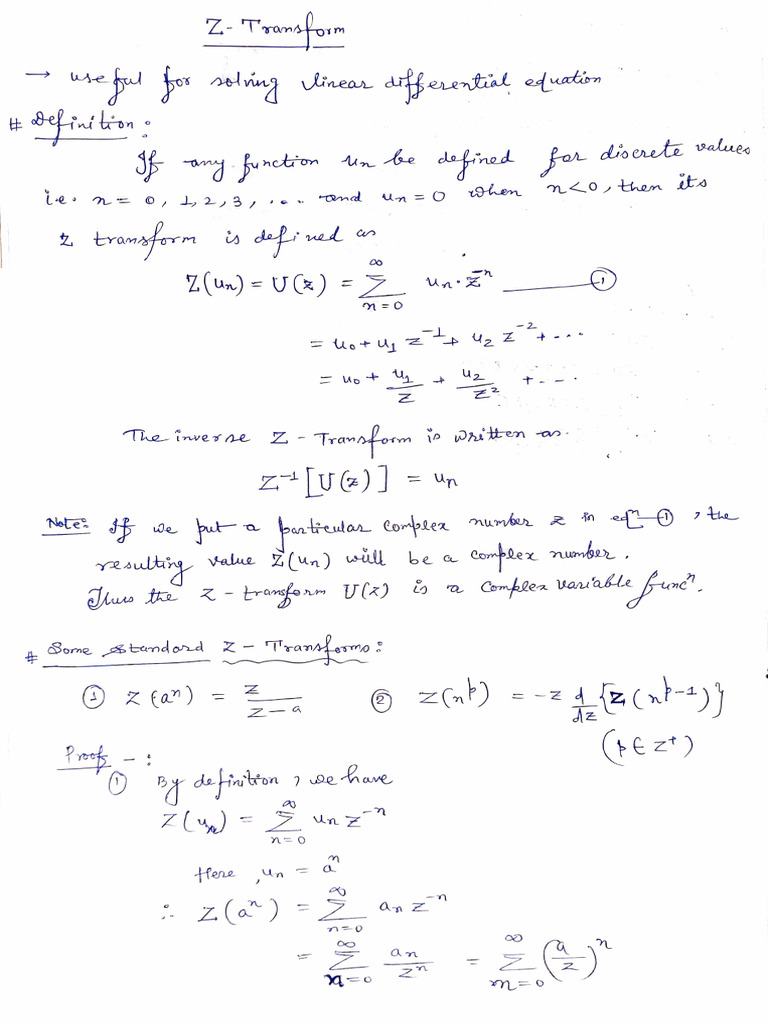 Z-Transform
→ useful for solving linear differential equation
# Definition:
If any function un be defined for discrete values
i.e. n = 0, 1, 2, 3, .... and un = 0 when n<0, then its
z transform is defined as
Z(un) = U(z) = ∑_{n=0}^{∞} un · z^{-n} ——— ①
= u0 + u1 z^{-1} + u2 z^{-2} + ...
= u0 + u1/z + u2/z^2 + ....
The inverse Z-Transform is written as
Z^{-1}[U(z)] = un
Note: If we put a particular complex number z in eq^n—①, the
resulting value Z(un) will be a complex number.
Thus the Z-transform U(z) is a complex variable func^n.
# Some Standard Z-Transforms:
① Z(a^n) = z/(z-a) ② Z(n^p) = -z d/dz {Z(n^{p-1})}
(p ∈ Z^+)
Proof -:
① By definition, we have
Z(un) = ∑_{n=0}^{∞} un z^{-n}
Here, un = a^n
∴ Z(a^n) = ∑_{n=0}^{∞} an z^{-n}
= ∑_{n=0}^{∞} an/z^n = ∑_{n=0}^{∞} (a/z)^n